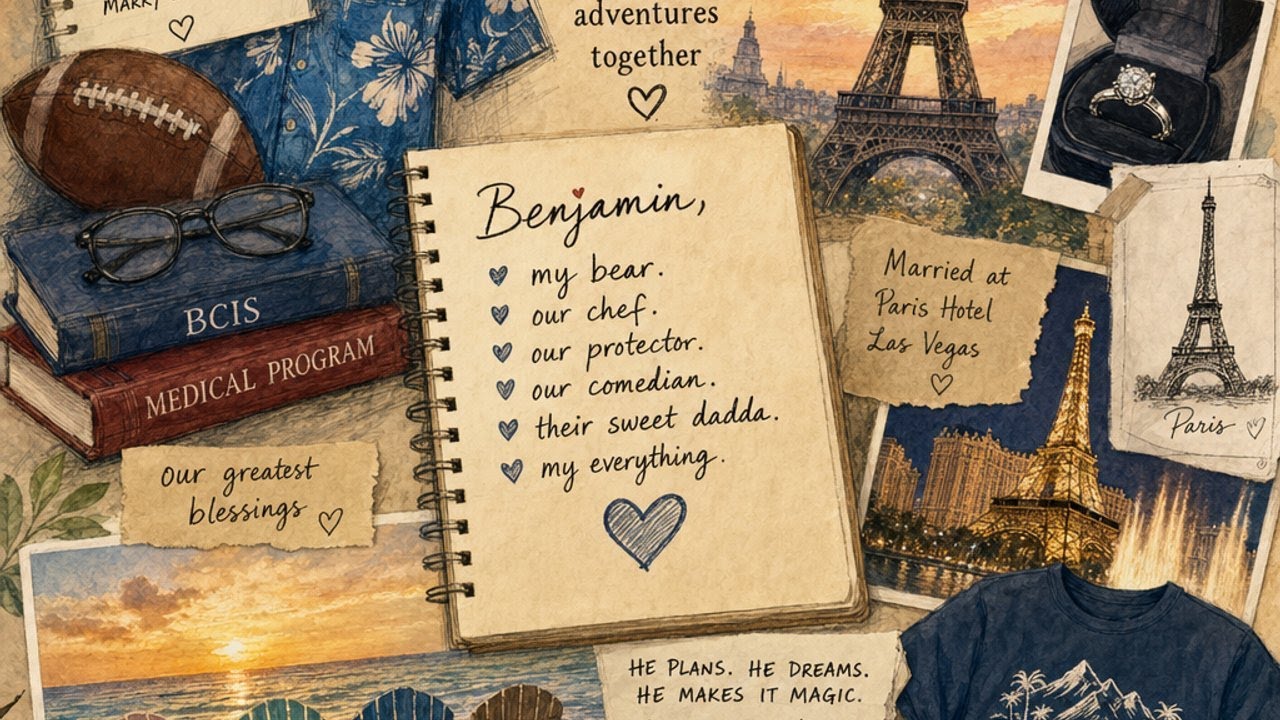 MARRY
adventures
together
BCIS
MEDICAL PROGRAM
Our greatest
blessings
Benjamin,
my bear.
our chef.
our protector.
our comedian.
their sweet dadda.
my everything.
Married at
Paris Hotel
Las Vegas
Paris
HE PLANS. HE DREAMS.
HE MAKES IT MAGIC.